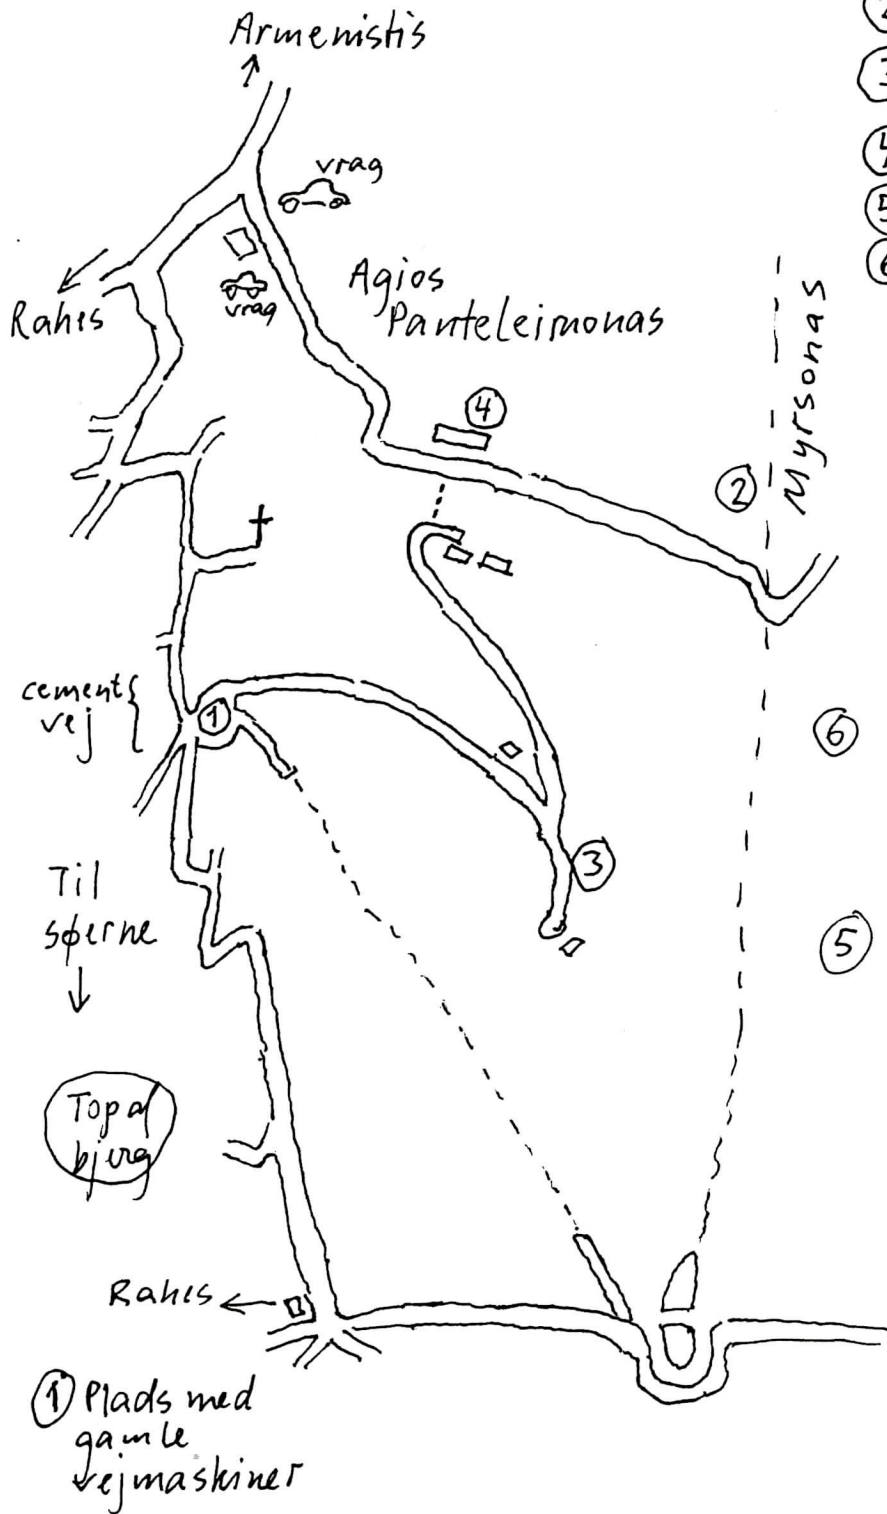 Armenistis
vrag
vrag
Rahes
Agios
Panteleimonas
Myrsonas
④
②
cement
vej
①
⑥
③
⑤
Til
søerne
Top af
bjerg
Rahes
① Plads med
gamle
vejmaskiner
③
④
⑤